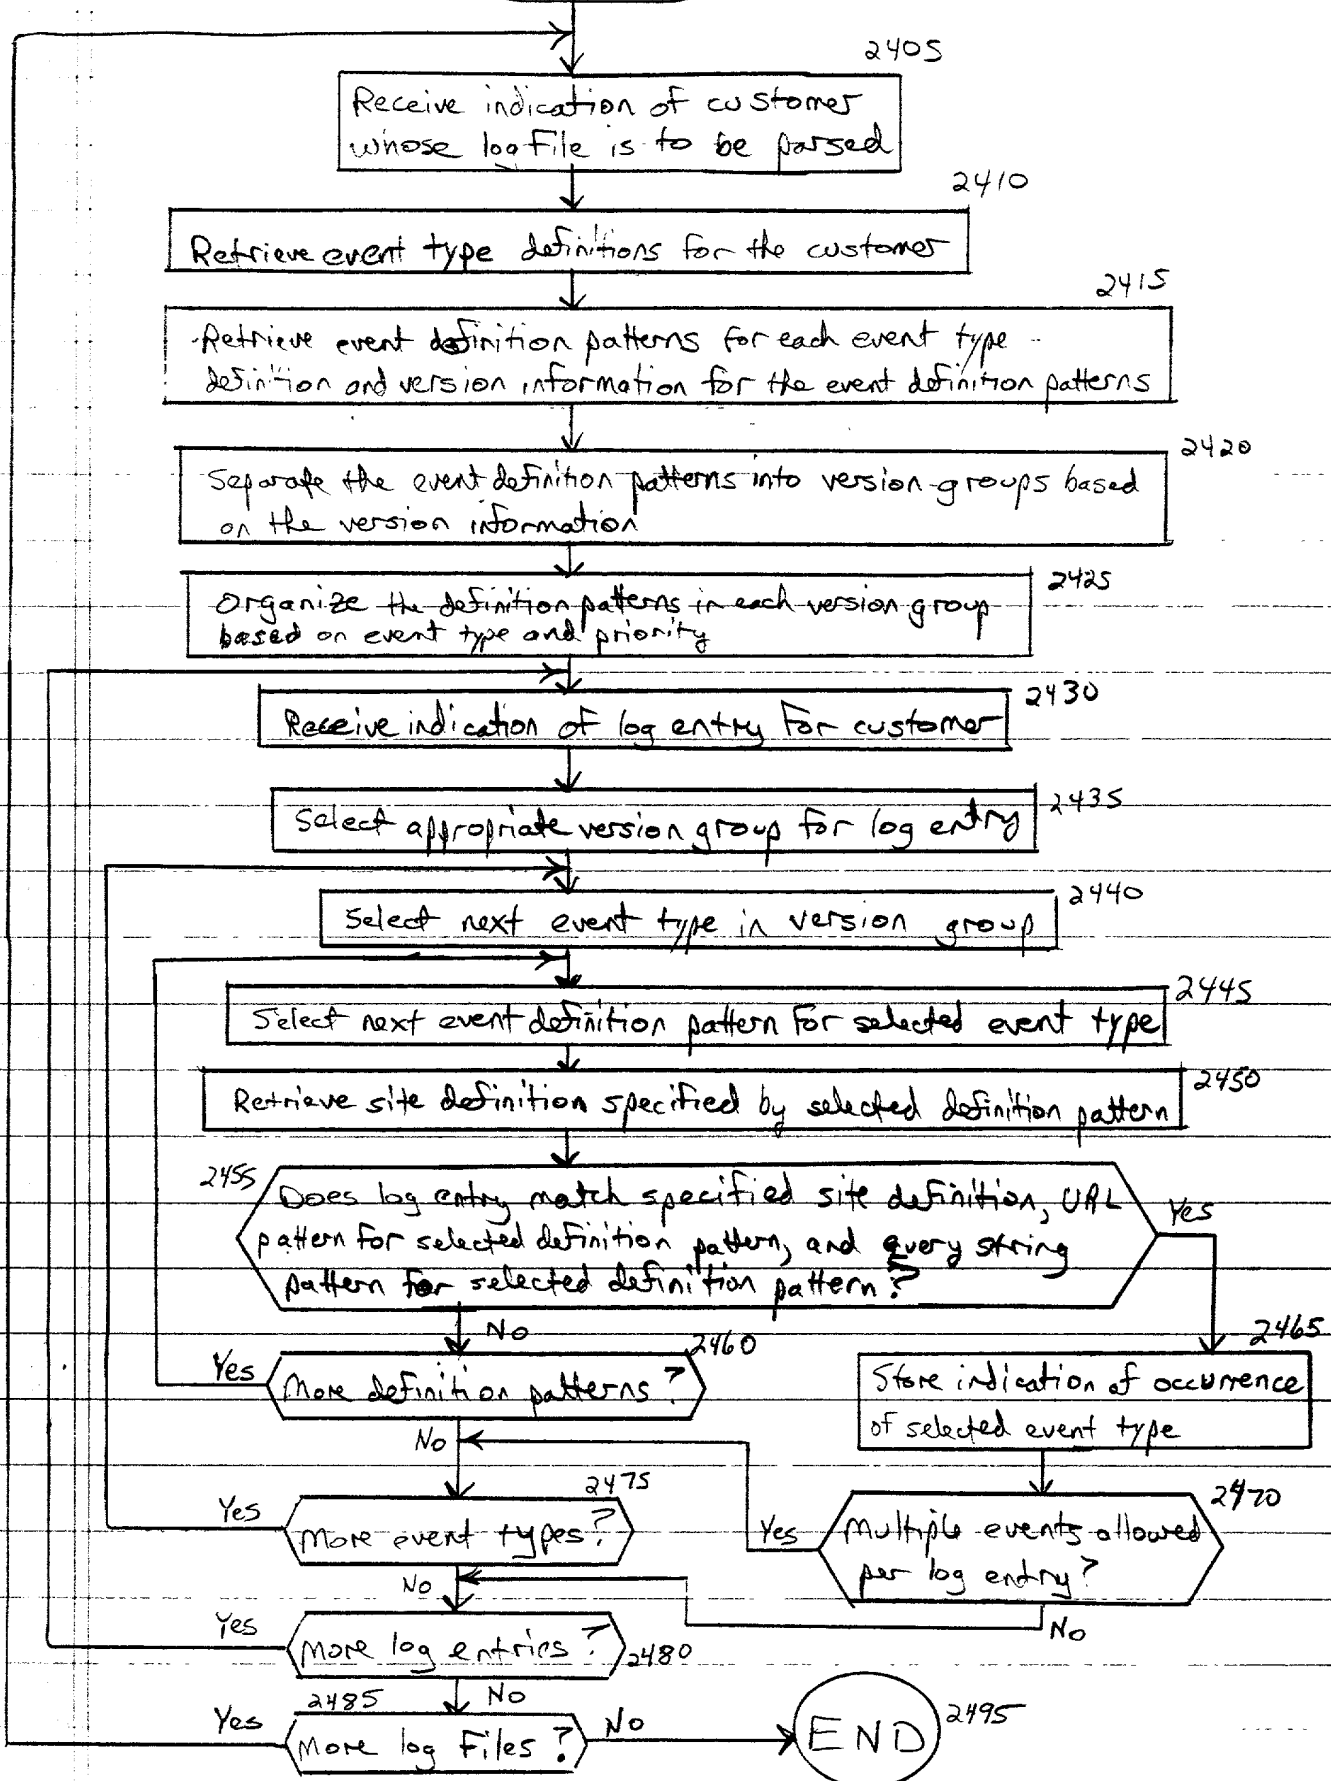 2405
Receive indication of customer
whose log file is to be parsed
2410
Retrieve event type definitions for the customer
2415
Retrieve event definition patterns for each event type
definition and version information for the event definition patterns
2420
Separate the event definition patterns into version groups based
on the version information
2425
Organize the definition patterns in each version group
based on event type and priority
2430
Receive indication of log entry for customer
2435
Select appropriate version group for log entry
2440
Select next event type in version group
2445
Select next event definition pattern for selected event type
2450
Retrieve site definition specified by selected definition pattern
2455
Does log entry match specified site definition, URL
pattern for selected definition pattern, and query string
pattern for selected definition pattern?
Yes
No
2460
Yes
More definition patterns?
No
2465
Store indication of occurrence
of selected event type
2475
Yes
More event types?
No
2470
Yes
Multiple events allowed
per log entry?
No
Yes
More log entries?
2480
No
2485
Yes
More log files?
No
END
2495